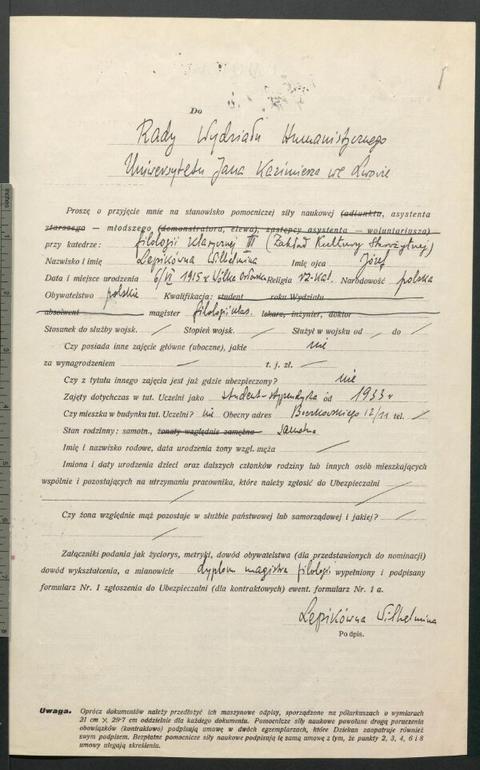 Do
Rady Wydziału Humanistycznego
Uniwersytetu Jana Kazimierza we Lwowie
Proszę o przyjęcie mnie na stanowisko pomocniczej siły naukowej (adjunkta, asystenta
starszego — młodszego (demonstratora, elewa), zastępcy asystenta — woluntariusza)
przy katedrze: filologii klasycznej III (Zakład Kultury Starożytnej)
Nazwisko i imię Lepikówna Wilhelmina Imię ojca Józef
Data i miejsce urodzenia 6/VI 1915 r Wólka Religia rz-kat. Narodowość polska
Obywatelstwo polskie Kwalifikacja: student roku Wydziału
absolwent magister filologii klas. lekarz, inżynier, doktor
Stosunek do służby wojsk. / Stopień wojsk. / Służył w wojsku od / do /
Czy posiada inne zajęcie główne (uboczne), jakie nie
za wynagrodzeniem / t. j. zł. /
Czy z tytułu innego zajęcia jest już gdzie ubezpieczony? nie
Zajęty dotychczas w tut. Uczelni jako student-stypendysta od 1933 r
Czy mieszka w budynku tut. Uczelni? nie Obecny adres 12/11 tel. /
Stan rodzinny: samotn., żonaty względnie zamężna samotna
Imię i nazwisko rodowe, data urodzenia żony wzgl. męża /
Imiona i daty urodzenia dzieci oraz dalszych członków rodziny lub innych osób mieszkających
wspólnie i pozostających na utrzymaniu pracownika, które należy zgłosić do Ubezpieczalni /
/ /
Czy żona względnie mąż pozostaje w służbie państwowej lub samorządowej i jakiej? /
/
Załączniki podania jak życiorys, metryki, dowód obywatelstwa (dla przedstawionych do nominacji)
dowód wykształcenia, a mianowicie dyplom magistra filologii wypełniony i podpisany
formularz Nr. 1 zgłoszenia do Ubezpieczalni (dla kontraktowych) ewent. formularz Nr. 1 a.
Lepikówna Wilhelmina
Podpis.
Uwaga. Oprócz dokumentów należy przedłożyć ich maszynowe odpisy, sporządzone na półarkuszach o wymiarach
21 cm × 29·7 cm oddzielnie dla każdego dokumentu. Pomocnicze siły naukowe powołane drogą poruczenia
obowiązków (kontraktowo) podpisują umowę w dwóch egzemplarzach, które Dziekan zaopatruje również
swym podpisem. Bezpłatne pomocnicze siły naukowe podpisują tę samą umowę z tym, że punkty 2, 3, 4, 6 i 8
umowy ulegają skreśleniu.